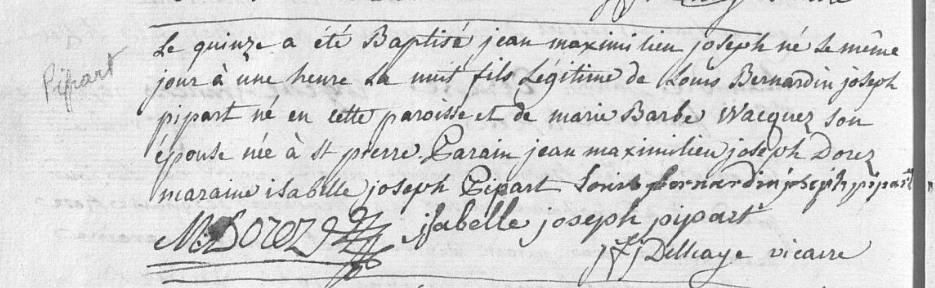 Pipart
Le quinze a été Baptisé jean maximilien joseph né le même
jour à une heure la nuit fils Légitime de Louis Bernardin joseph
pipart né en cette paroisse et de marie Barbe Wacquez son
épouse née à st pierre. Parain jean maximilien joseph Dorez
maraine isabelle joseph Pipart Louis bernardin joseph pipart
MDorez isabelle joseph pipart
Delhaye vicaire